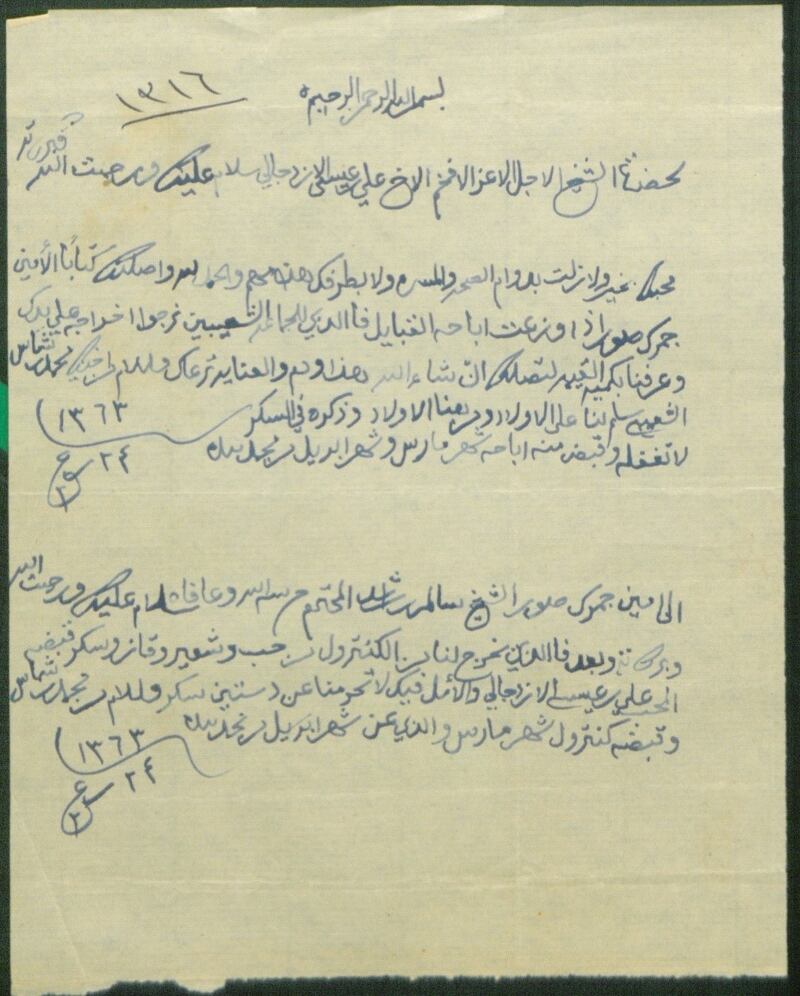 بسم الله الرحمن الرحيم
١٣١٦
لحضرة الشيخ الاجل الاعز الافخم الاخ علي بن عيسى الازدجالي سلام عليك ورحمت الله
وبركاته
محبك بخير ولا زلت بدوام الصحه والمسره ولا بطرفك هذا مهم والحمد لله واصلك كتابا الأمين
جمرك صور اذا وزعت اباحه القبايل فا الذي للجماعه الشعيبين نرجوا اخراجه على يدك
وعرفنا بكمية القيمه لتصلك ان شاء الله هذا ودم والعنايه ترعاك والسلام من محبك محمد بن شماس
الشعيبي سلم لنا على الاولاد ومن معنا الاولاد وذكره في السكر
لا تغفله وقبض منه اباحه شهر مارس وشهر ابريل بن محمد بيده
١٣٦٣
٢٤ ع ٢
الى امين جمرك صور الشيخ سالم بن راشد المحترم حرسه الله وعافاه سلام عليك ورحمت الله
وبركاته وبعد فا الذي يخرج لنا من الكنترول من حب وشعير وقاز وسكر قبضه
المحب علي بن عيسى الازدجالي والأمل فيك لا تحرمنا عن دستين سكر والسلام من محمد بن شماس
وقبضه كنترول شهر مارس والذي عن شهر ابريل بن محمد بيده
١٣٦٣
٢٤ ع ٢